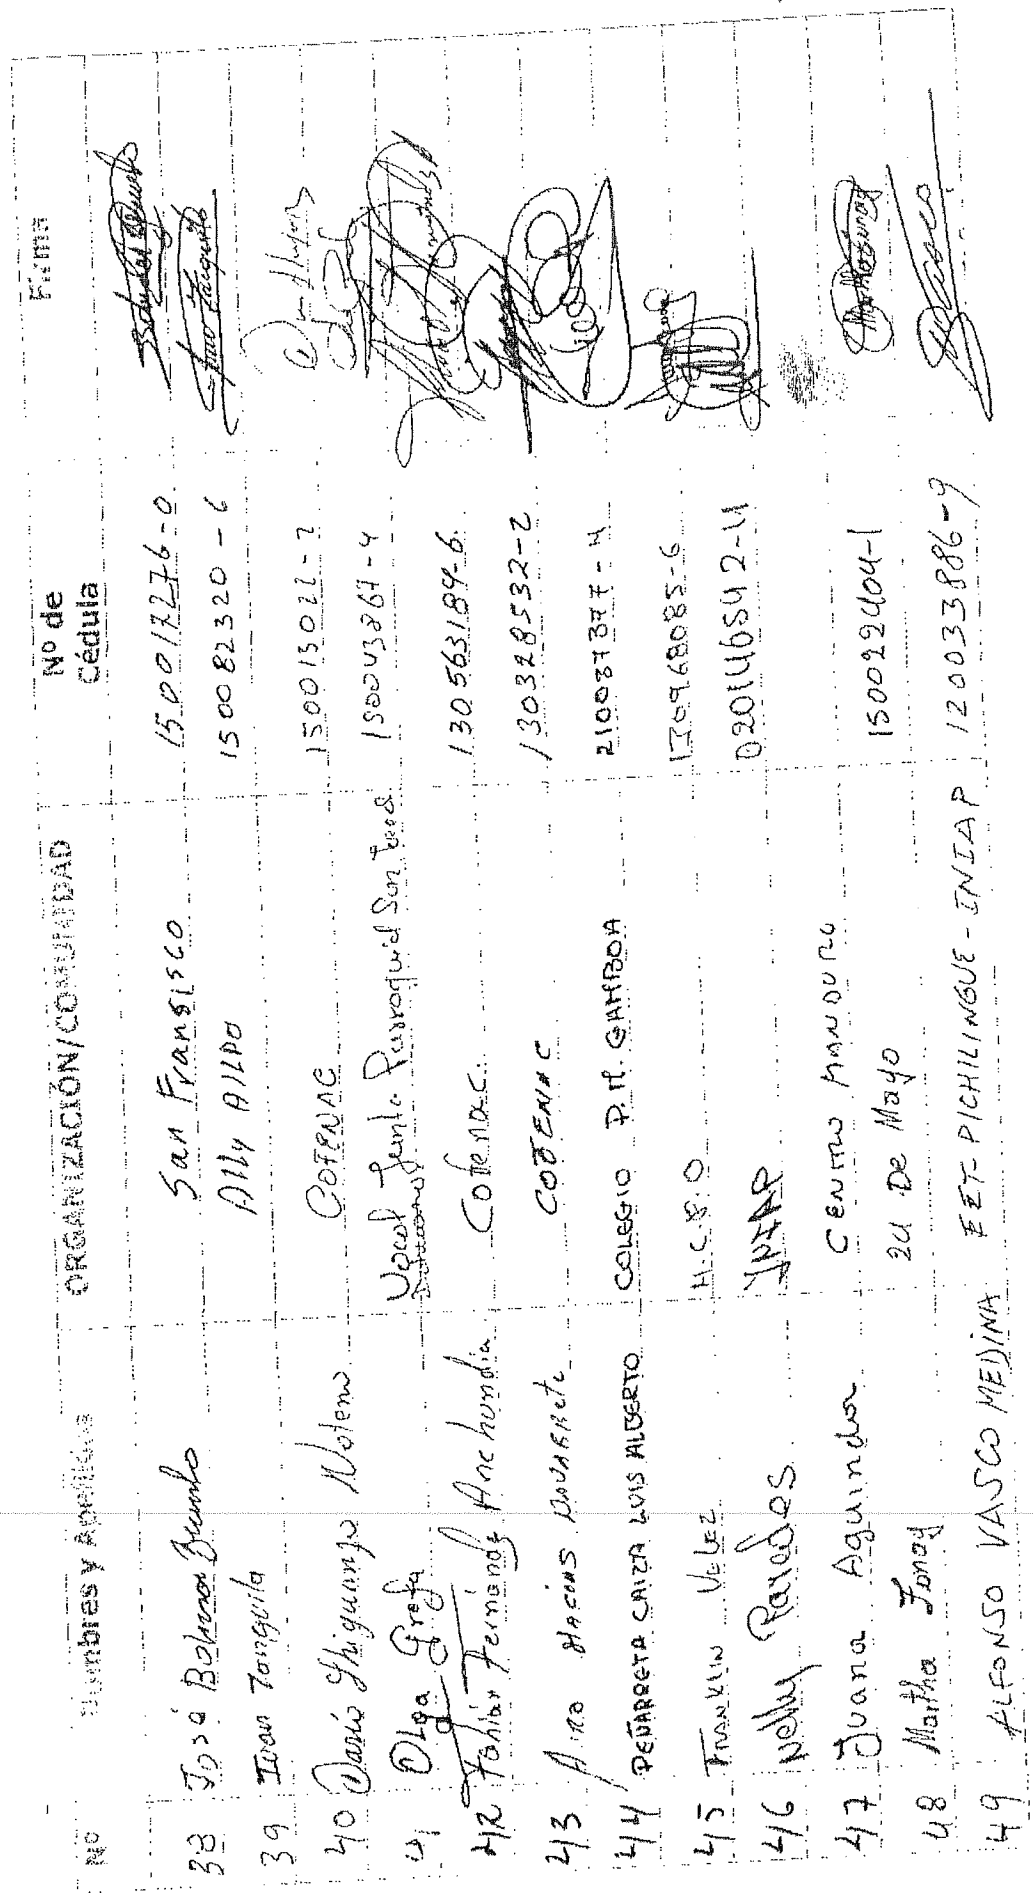 Nº Nombres y Apellidos ORGANIZACIÓN/COMUNIDAD Nº de Cédula Firma
38 José Bolivar San Fransisco 150017276-0
39 Ivan Tanguila Ally Allpa 150082320-6
40 Dario Shiguango Noteno COFENAC 150015022-7
41 Olga Grefa Vocal Junta Parroquial San José 150043867-4
42 Fabian Fernández Anchundia Cofenac 130563189-6
43 Macias Navarrete COFENAC 130328532-2
44 PEÑARRETA CAIZA LUIS ALBERTO COLEGIO P.M. GAMBOA 210037377-4
45 FRANKLIN VELEZ H.C.P.O 170968085-6
46 Nelly Paredes INIAP 020146542-4
47 Juana Aguinda CENTRO MANDURO
48 Martha 24 De Mayo 150022404-1
49 ALFONSO VASCO MEDINA EET-PICHILINGUE-INIAP 120033886-9